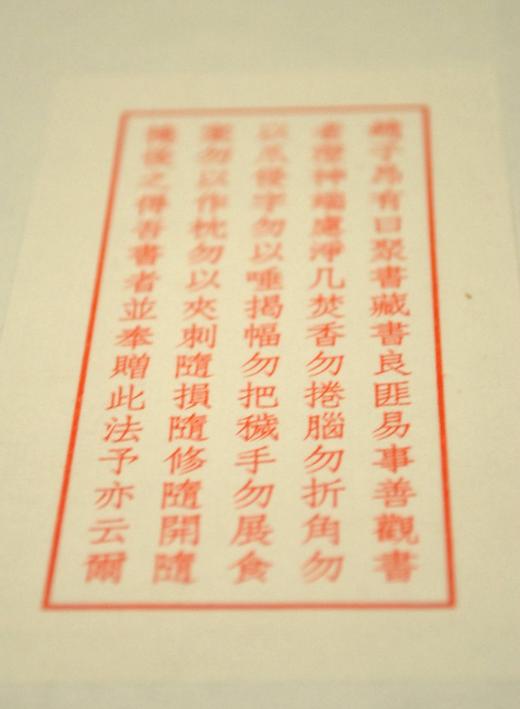 趙子昂有曰聚書藏書良匪易事善觀書
者澄神端慮淨几焚香勿捲腦勿折角勿
以爪侵字勿以唾揭幅勿把穢手勿展食
案勿以作枕勿以夾刺隨損隨修隨開隨
掩後之得吾書者並奉贈此法予亦云爾